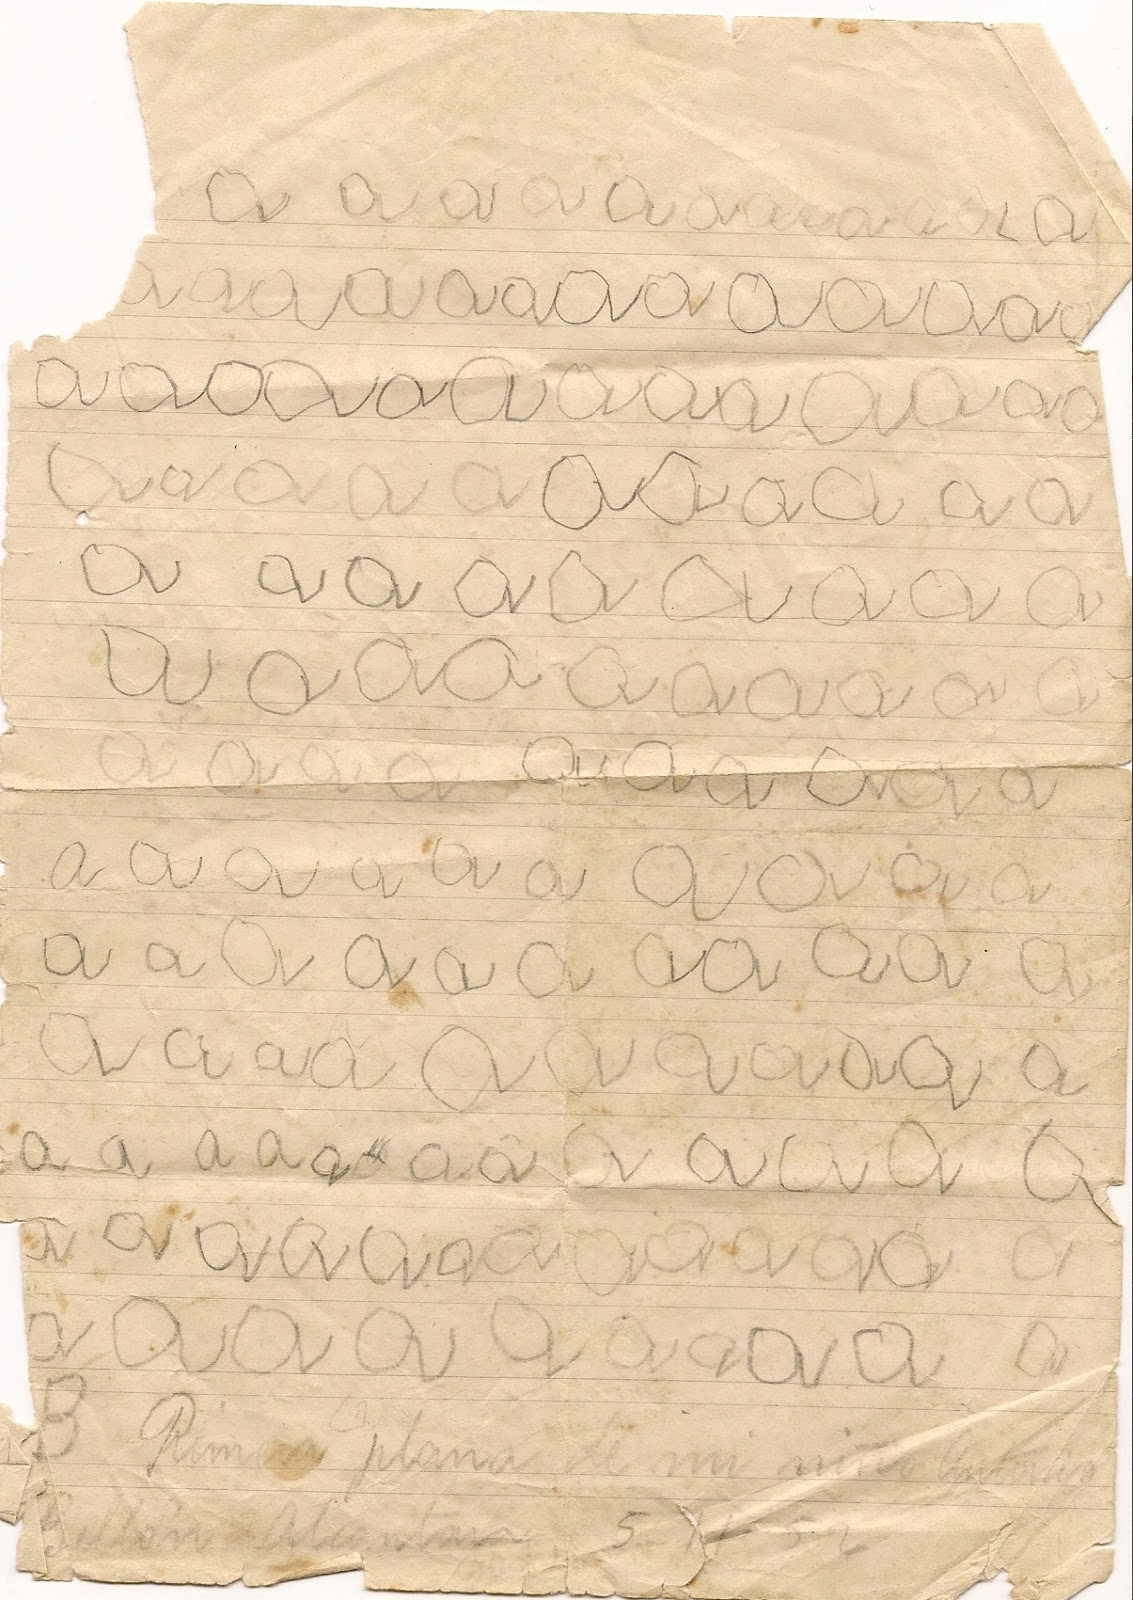 a a a a a a a a a a a a
a a a a a a a a a a a a a
a a a a a a a a a a a a a
a a a a a a a a a a a
a a a a a a a a a
a a a a a a a a a a
a a a a a a a a a a
a a a a a a a a a a
a a a a a a a a a a a
a a a a a a a a a a a
a a a a a a a a a a a a
a a a a a a a a a a a a a
a a a a a a a a a a
B Primera plana de mi niño Antonio
Bellón Alcantara 5 XI 52